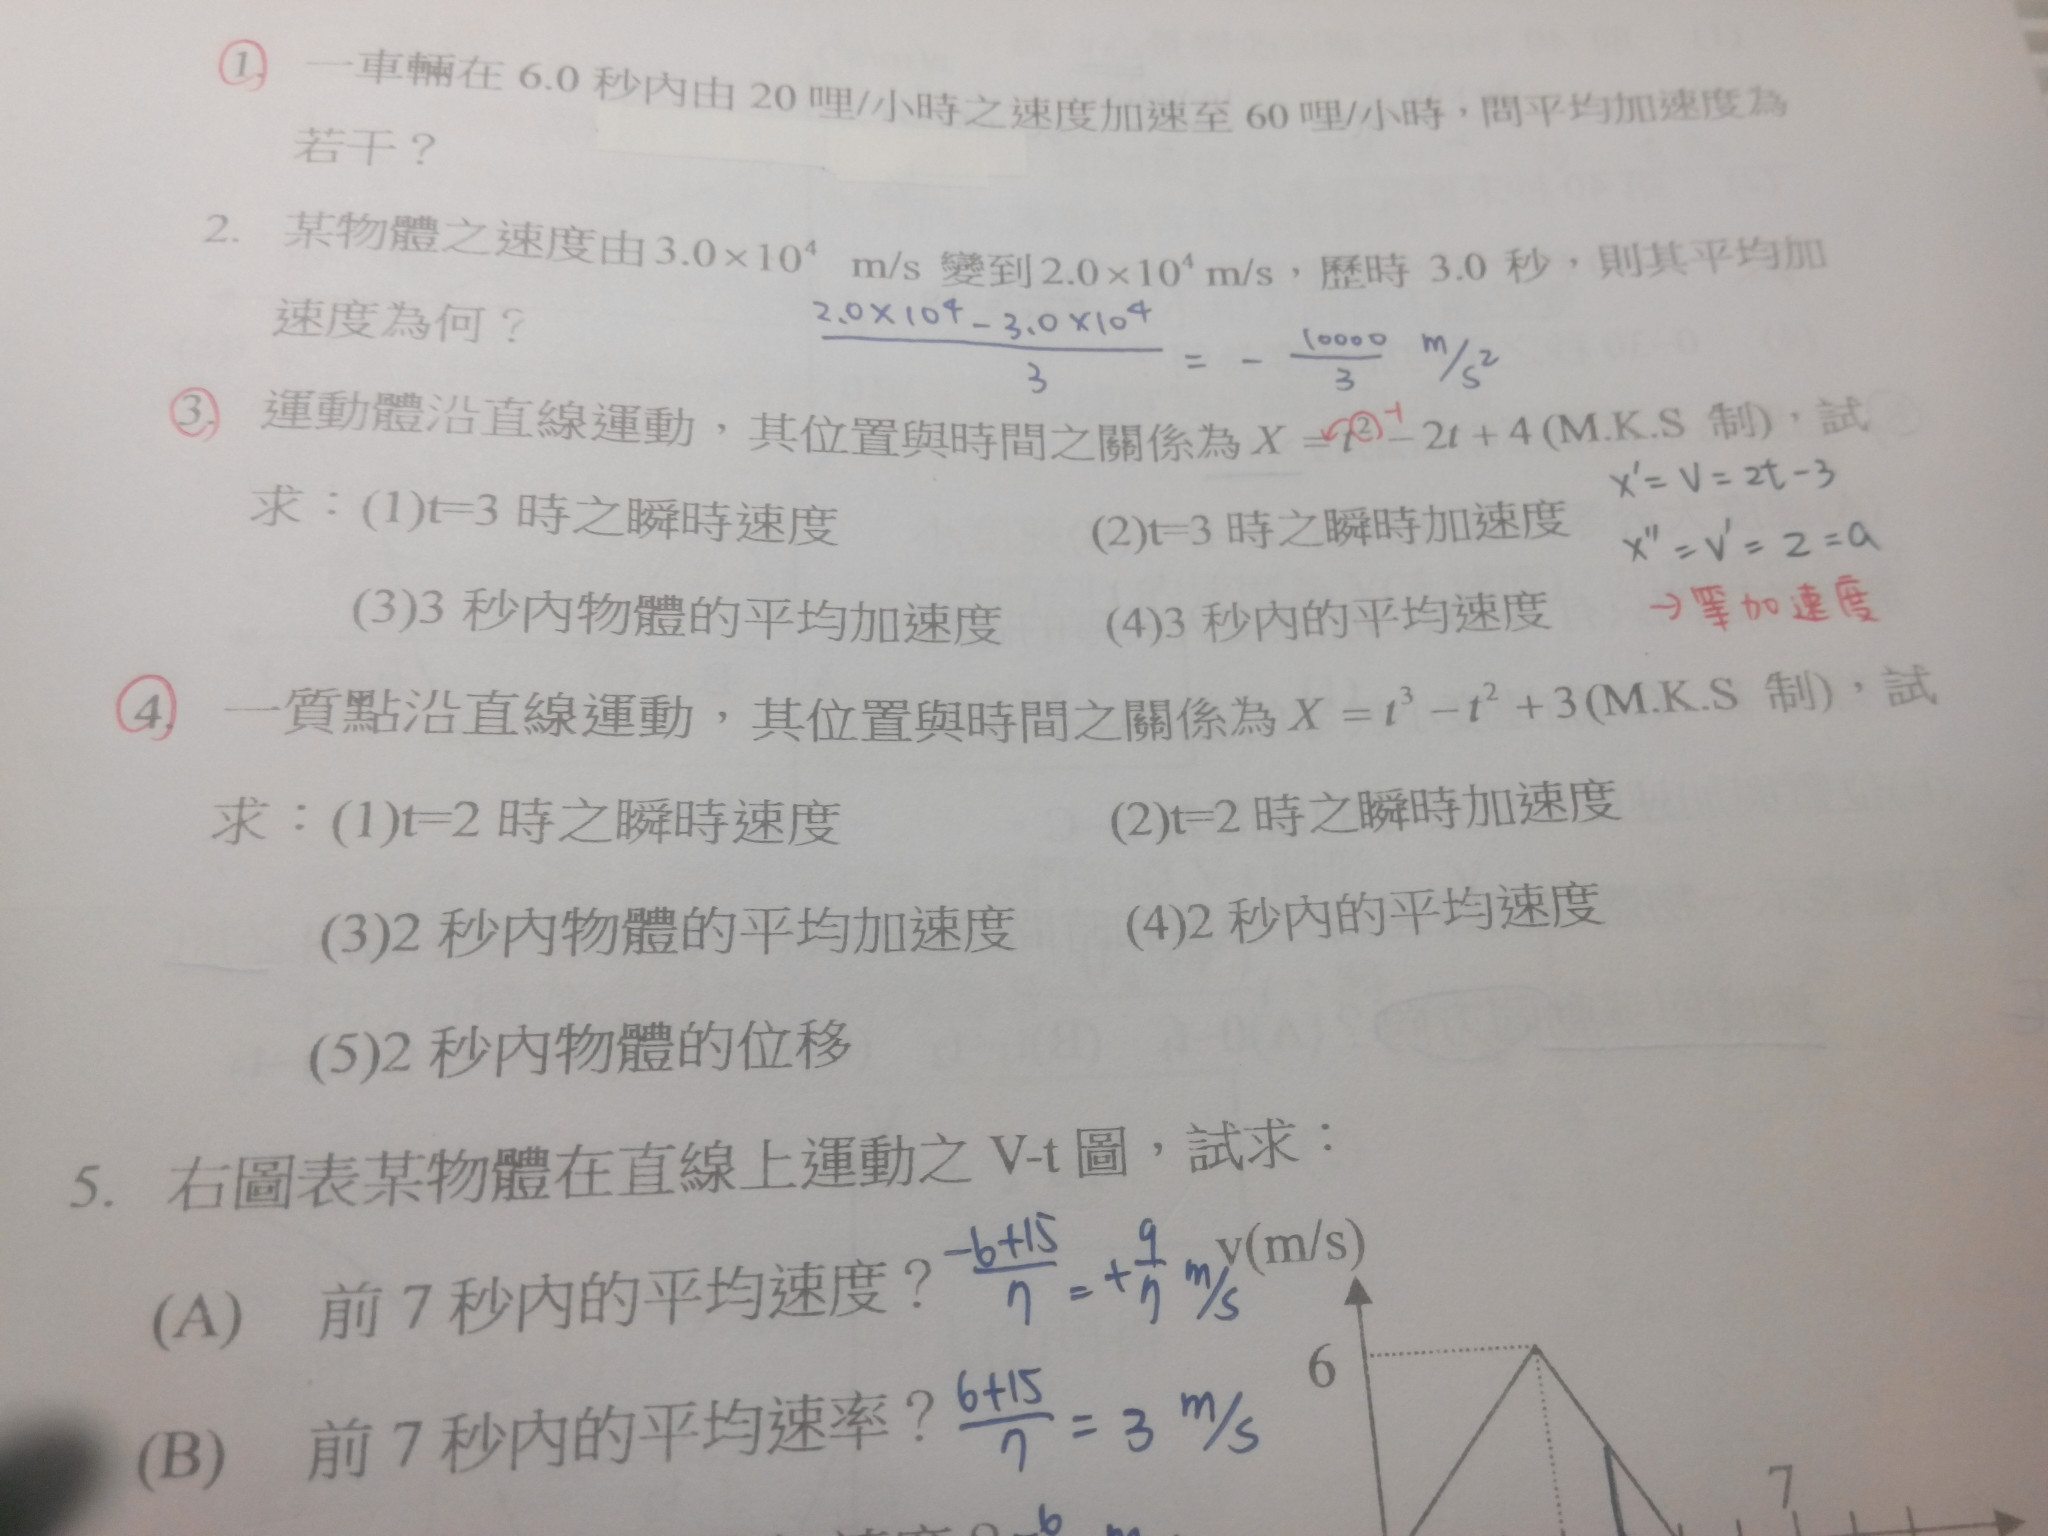 1. 一車輛在 6.0 秒內由 20 哩/小時之速度加速至 60 哩/小時，問平均加速度為
若干？
2. 某物體之速度由 3.0×10⁴ m/s 變到 2.0×10⁴ m/s，歷時 3.0 秒，則其平均加
速度為何？
2.0×10⁴-3.0×10⁴/3 = - 10000/3 m/s²
3. 運動體沿直線運動，其位置與時間之關係為 X = t² - 2t + 4 (M.K.S 制)，試
-1
x' = v = 2t-3
求：(1)t=3 時之瞬時速度 (2)t=3 時之瞬時加速度
x" = v' = 2 = a
(3)3 秒內物體的平均加速度 (4)3 秒內的平均速度
→等加速度
4. 一質點沿直線運動，其位置與時間之關係為 X = t³ - t² + 3 (M.K.S 制)，試
求：(1)t=2 時之瞬時速度 (2)t=2 時之瞬時加速度
(3)2 秒內物體的平均加速度 (4)2 秒內的平均速度
(5)2 秒內物體的位移
5. 右圖表某物體在直線上運動之 V-t 圖，試求：
(A) 前 7 秒內的平均速度？ -6+15/7 = +9/7 m/s
v(m/s)
6
(B) 前 7 秒內的平均速率？ 6+15/7 = 3 m/s
7